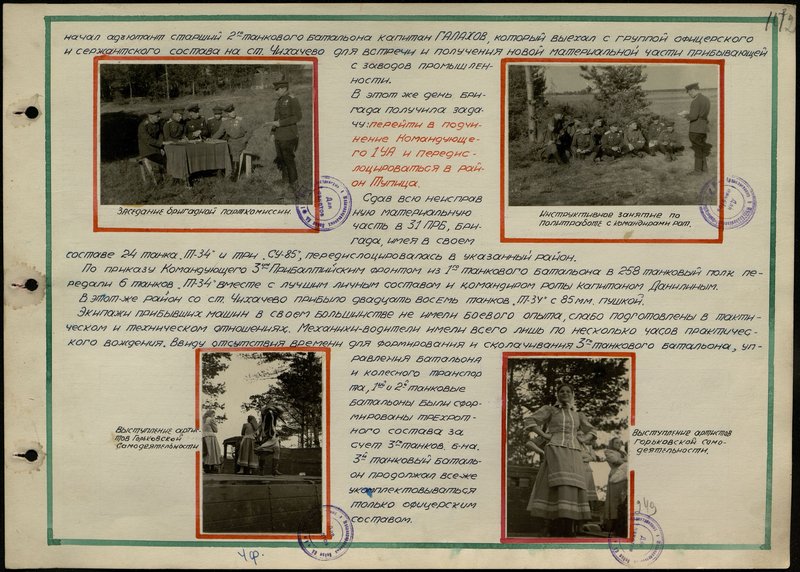 начал адъютант старший 2го танкового батальона капитан ГАЛАХОВ, который выехал с группой офицерского
и сержантского состава на ст. Чихачево для встречи и получения новой материальной части прибывающей
с заводов промышлен-
ности.
В этот же день бри-
гада получила зада-
чу: перейти в подчи-
нение Командующе-
го 1УА и передис-
лоцироваться в рай-
он Тупица.
Сдав всю неисправ
ную материальную
часть в 31 ПРБ, бри-
гада, имея в своем
Заседание бригадной парткомиссии.
Инструктивное занятие по
политработе с командирами рот.
составе 24 танка „Т-34" и три „СУ-85", передислоцировалась в указанный район.
По приказу Командующего 3им Прибалтийским фронтом из 1го танкового батальона в 258 танковый полк пе-
редали 6 танков „Т-34" вместе с лучшим личным составом и командиром роты капитаном Данилиным.
В этот же район со ст. Чихачево прибыло двадцать восемь танков „Т-34" с 85мм. пушкой.
Экипажи прибывших машин в своем большинстве не имели боевого опыта, слабо подготовлены в такти-
ческом и техническом отношениях. Механики-водители имели всего лишь по несколько часов практичес-
кого вождения. Ввиду отсутствия времени для формирования и сколачивания 3го танкового батальона, уп-
равления батальона
и колесного транспор
та, 1ый и 2й танковые
батальоны были сфор-
мированы трехрот-
ного состава за
счет 3го танков. б-на.
3й танковый баталь-
он продолжал все-же
укомплектовываться
только офицерским
составом.
Выступление арти-
стов Горьковской
самодеятельности
Выступление артистов
Горьковской само-
деятельности.
249